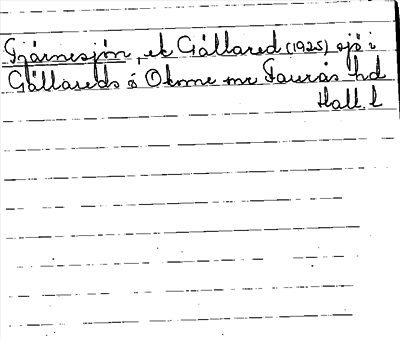 Tjärnesjön, ek Gällared (1925) sjö i
Gällareds o Okome snr Faurås hd
Hall. l